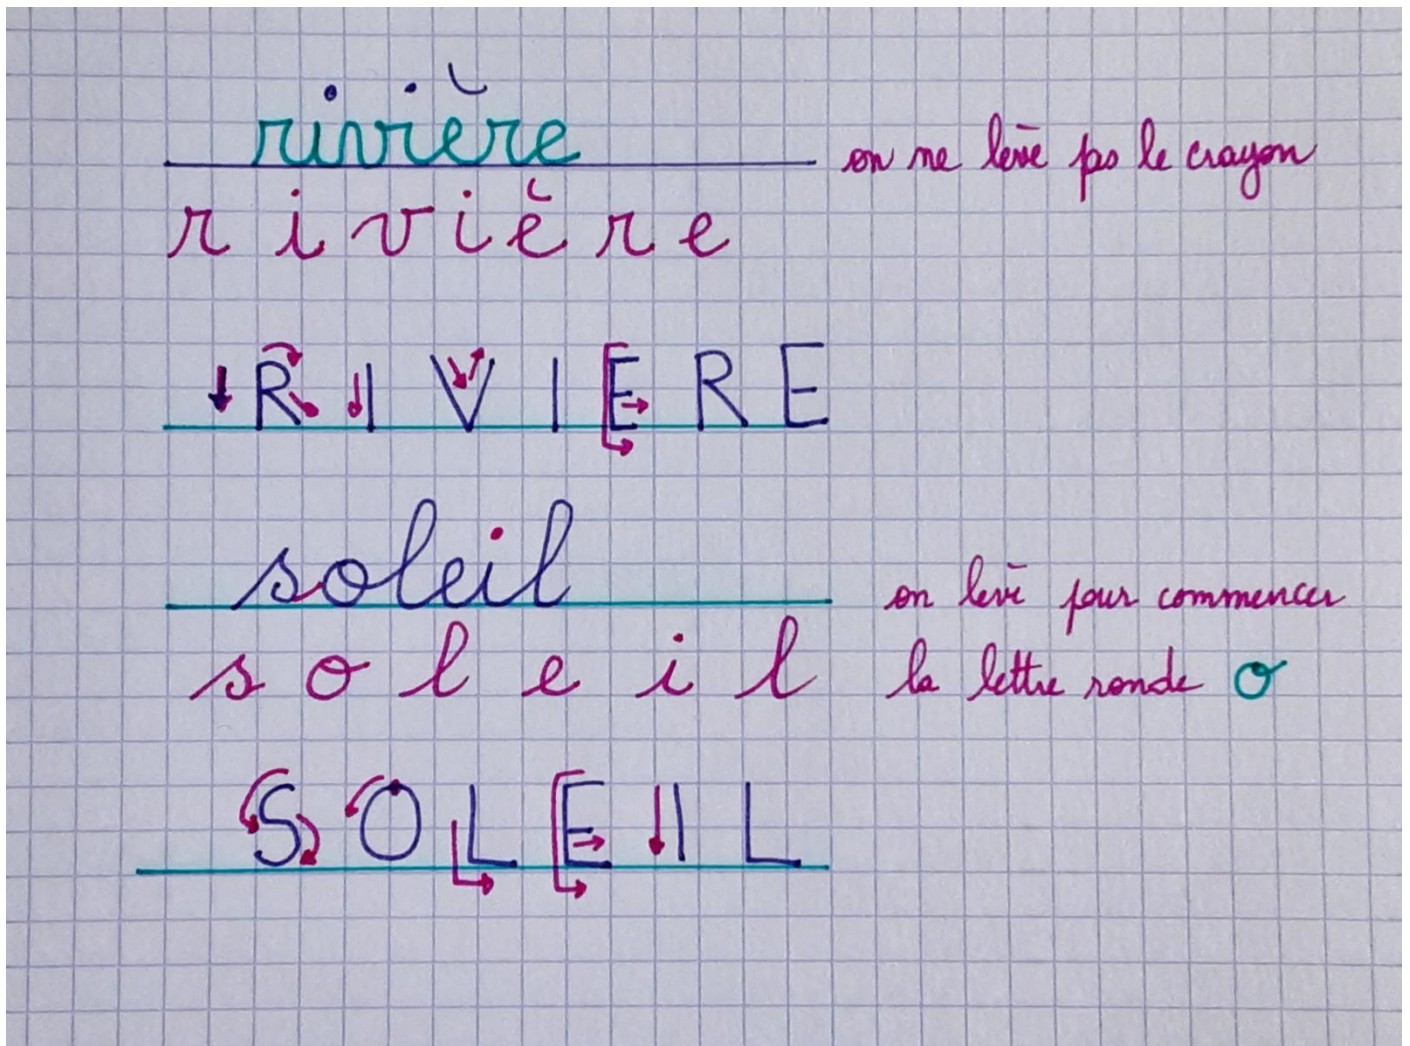 rivière
on ne lève pas le crayon
r i v i è r e
R I V I E R E
soleil
on lève pour commencer
s o l e i l
la lettre ronde o
S O L E I L